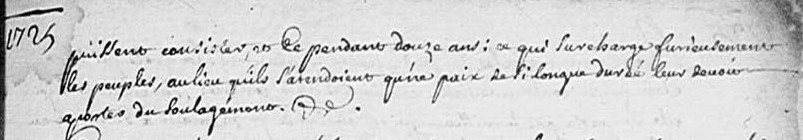 1725
puissent consister, et ce pendant douze ans : ce qui surcharge furieusement
les peuples, au lieu quils s'atendoient qu'une paix de si longue durée leur devoir
aporter du soulagément.